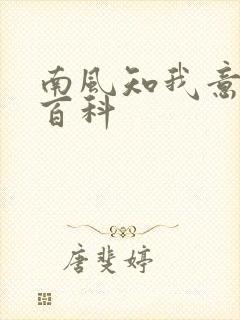 南風知我意
百科
唐斐婷